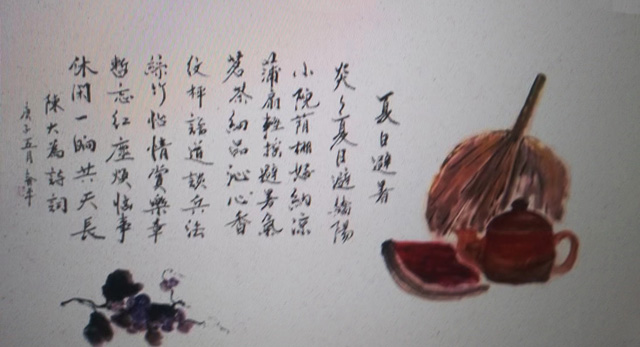 夏日避暑
炎々夏日避骄陽
小院荫棚好納凉
蒲扇輕摇避暑氣
茗茶細品沁心香
纹枰論道談兵法
絲竹怡情賞樂章
暫忘紅塵煩惱事
休閑一晌共天長
陳大為詩詞
庚子五月